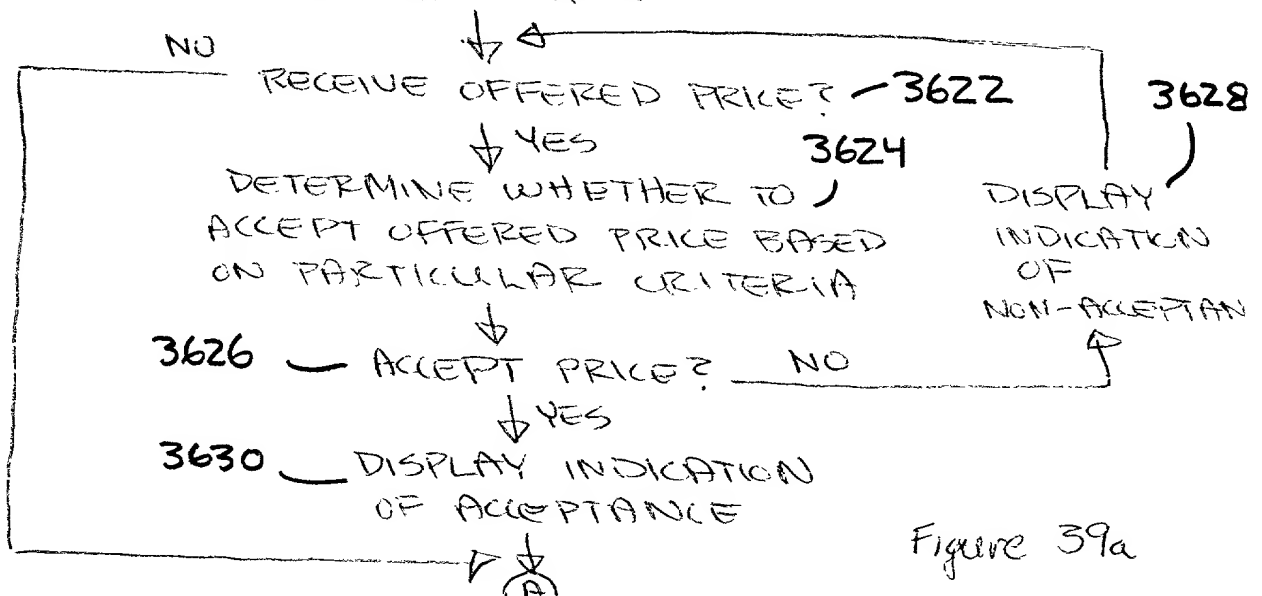 NO
RECEIVE OFFERED PRICE? 3622
3628
YES
3624
DETERMINE WHETHER TO
ACCEPT OFFERED PRICE BASED
ON PARTICULAR CRITERIA
DISPLAY
INDICATION
OF
NON-ACCEPTAN
3626 ACCEPT PRICE? NO
YES
3630 DISPLAY INDICATION
OF ACCEPTANCE
Figure 39a
A